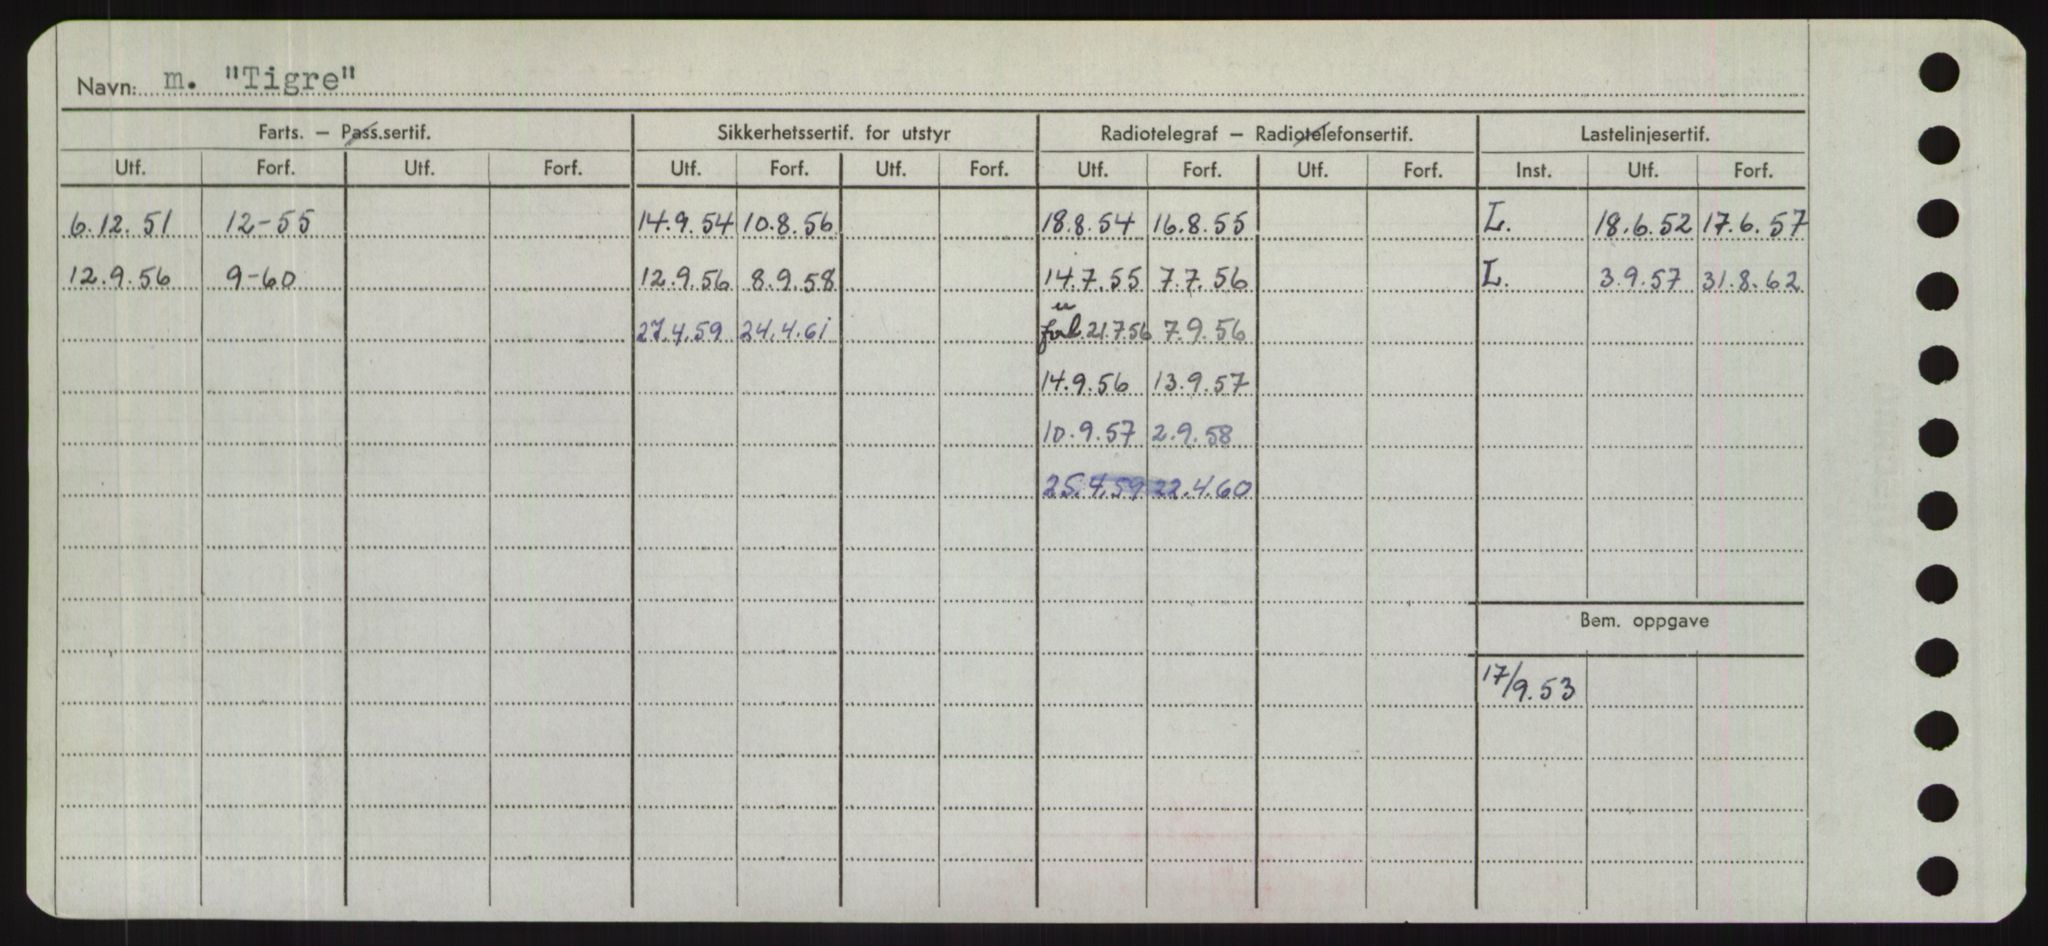 Navn: m. "Tigre"
Farts. — Pass.sertif. Sikkerhetssertif. for utstyr Radiotelegraf — Radiotelefonsertif. Lastelinjesertif.
Utf. Forf. Utf. Forf. Utf. Forf. Utf. Forf. Utf. Forf. Utf. Forf. Inst. Utf. Forf.
6.12.51 12-55 14.9.54 10.8.56 18.8.54 16.8.55 L. 18.6.52 17.6.57
12.9.56 9-60 12.9.56 8.9.58 14.7.55 7.7.56 L. 3.9.57 31.8.62
27.4.59 24.4.61 forl. 21.7.56 7.9.56
14.9.56 13.9.57
10.9.57 2.9.58
25.4.59 22.4.60
Bem. oppgave
17/9.53